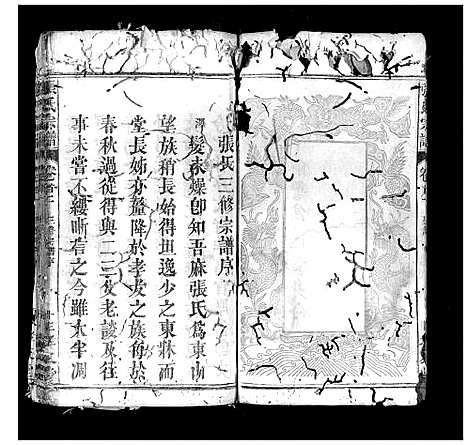 張氏三修宗譜序
髮未燥卽知吾麻張氏爲東山
望族稍長始得坦逸少之東牀而
堂長姊亦釐降於孝友之族每於
春秋過從得與二三父老談及往
事未嘗不縷晰言之今雖大半凋
張氏宗譜